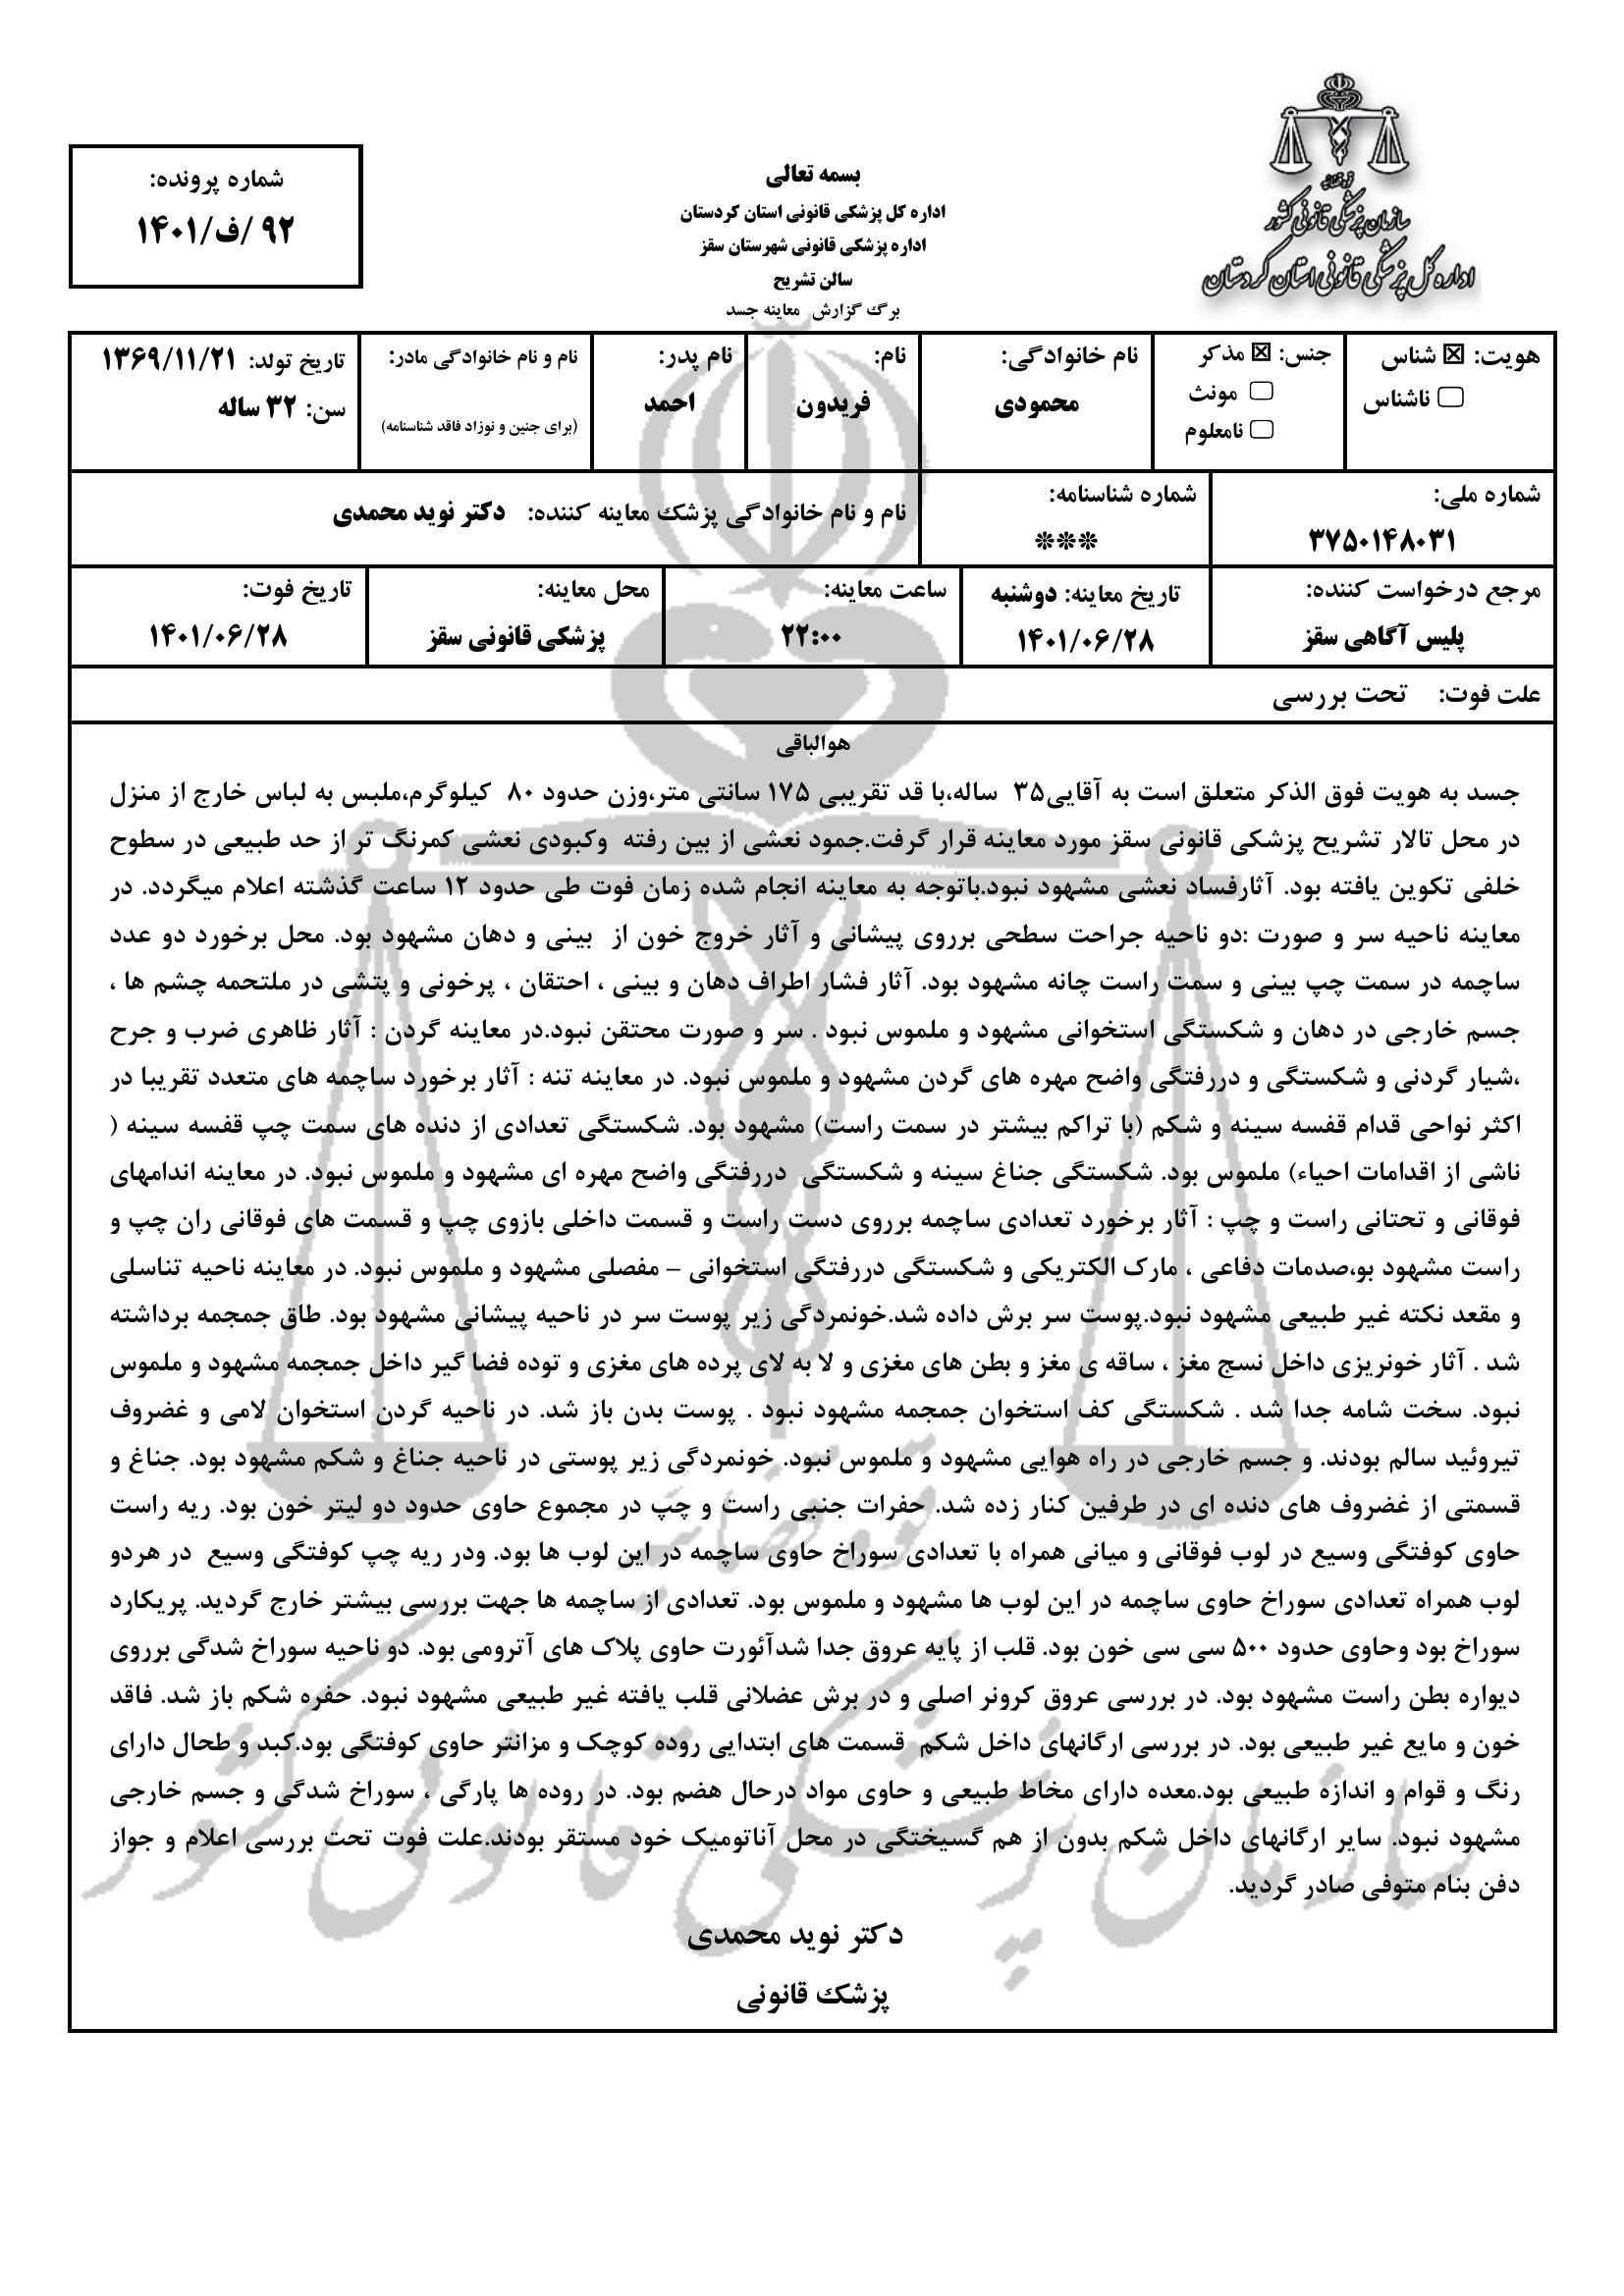 قوه قضائیه
سازمان پزشکی قانونی کشور
اداره کل پزشکی قانونی استان کردستان
بسمه تعالی
اداره کل پزشکی قانونی استان کردستان
اداره پزشکی قانونی شهرستان سقز
سالن تشریح
برگ گزارش معاینه جسد
شماره پرونده:
۹۲ /ف/۱۴۰۱
هویت: ☒ شناس
▢ ناشناس
جنس: ☒ مذکر
▢ مونث
▢ نامعلوم
نام خانوادگی:
محمودی
نام:
فریدون
نام پدر:
احمد
نام و نام خانوادگی مادر:
(برای جنین و نوزاد فاقد شناسنامه)
تاریخ تولد: ۱۳۶۹/۱۱/۲۱
سن: ۳۲ ساله
شماره ملی:
۳۷۵۰۱۴۸۰۳۱
شماره شناسنامه:
***
نام و نام خانوادگی پزشک معاینه کننده: دکتر نوید محمدی
مرجع درخواست کننده:
پلیس آگاهی سقز
تاریخ معاینه: دوشنبه
۱۴۰۱/۰۶/۲۸
ساعت معاینه:
۲۲:۰۰
محل معاینه:
پزشکی قانونی سقز
تاریخ فوت:
۱۴۰۱/۰۶/۲۸
علت فوت: تحت بررسی
هوالباقی
جسد به هویت فوق الذکر متعلق است به آقایی۳۵ ساله،با قد تقریبی ۱۷۵ سانتی متر،وزن حدود ۸۰ کیلوگرم،ملبس به لباس خارج از منزل
در محل تالار تشریح پزشکی قانونی سقز مورد معاینه قرار گرفت.جمود نعشی از بین رفته وکبودی نعشی کمرنگ تر از حد طبیعی در سطوح
خلفی تکوین یافته بود. آثارفساد نعشی مشهود نبود.باتوجه به معاینه انجام شده زمان فوت طی حدود ۱۲ ساعت گذشته اعلام میگردد. در
معاینه ناحیه سر و صورت :دو ناحیه جراحت سطحی برروی پیشانی و آثار خروج خون از بینی و دهان مشهود بود. محل برخورد دو عدد
ساچمه در سمت چپ بینی و سمت راست چانه مشهود بود. آثار فشار اطراف دهان و بینی ، احتقان ، پرخونی و پتشی در ملتحمه چشم ها ،
جسم خارجی در دهان و شکستگی استخوانی مشهود و ملموس نبود . سر و صورت محتقن نبود.در معاینه گردن : آثار ظاهری ضرب و جرح
،شیار گردنی و شکستگی و دررفتگی واضح مهره های گردن مشهود و ملموس نبود. در معاینه تنه : آثار برخورد ساچمه های متعدد تقریبا در
اکثر نواحی قدام قفسه سینه و شکم (با تراکم بیشتر در سمت راست) مشهود بود. شکستگی تعدادی از دنده های سمت چپ قفسه سینه (
ناشی از اقدامات احیاء) ملموس بود. شکستگی جناغ سینه و شکستگی دررفتگی واضح مهره ای مشهود و ملموس نبود. در معاینه اندامهای
فوقانی و تحتانی راست و چپ : آثار برخورد تعدادی ساچمه برروی دست راست و قسمت داخلی بازوی چپ و قسمت های فوقانی ران چپ و
راست مشهود بو،صدمات دفاعی ، مارک الکتریکی و شکستگی دررفتگی استخوانی – مفصلی مشهود و ملموس نبود. در معاینه ناحیه تناسلی
و مقعد نکته غیر طبیعی مشهود نبود.پوست سر برش داده شد.خونمردگی زیر پوست سر در ناحیه پیشانی مشهود بود. طاق جمجمه برداشته
شد . آثار خونریزی داخل نسج مغز ، ساقه ی مغز و بطن های مغزی و لا به لای پرده های مغزی و توده فضا گیر داخل جمجمه مشهود و ملموس
نبود. سخت شامه جدا شد . شکستگی کف استخوان جمجمه مشهود نبود . پوست بدن باز شد. در ناحیه گردن استخوان لامی و غضروف
تیروئید سالم بودند. و جسم خارجی در راه هوایی مشهود و ملموس نبود. خونمردگی زیر پوستی در ناحیه جناغ و شکم مشهود بود. جناغ و
قسمتی از غضروف های دنده ای در طرفین کنار زده شد. حفرات جنبی راست و چپ در مجموع حاوی حدود دو لیتر خون بود. ریه راست
حاوی کوفتگی وسیع در لوب فوقانی و میانی همراه با تعدادی سوراخ حاوی ساچمه در این لوب ها بود. ودر ریه چپ کوفتگی وسیع در هردو
لوب همراه تعدادی سوراخ حاوی ساچمه در این لوب ها مشهود و ملموس بود. تعدادی از ساچمه ها جهت بررسی بیشتر خارج گردید. پریکارد
سوراخ بود وحاوی حدود ۵۰۰ سی سی خون بود. قلب از پایه عروق جدا شدآئورت حاوی پلاک های آترومی بود. دو ناحیه سوراخ شدگی برروی
دیواره بطن راست مشهود بود. در بررسی عروق کرونر اصلی و در برش عضلانی قلب یافته غیر طبیعی مشهود نبود. حفره شکم باز شد. فاقد
خون و مایع غیر طبیعی بود. در بررسی ارگانهای داخل شکم قسمت های ابتدایی روده کوچک و مزانتر حاوی کوفتگی بود.کبد و طحال دارای
رنگ و قوام و اندازه طبیعی بود.معده دارای مخاط طبیعی و حاوی مواد درحال هضم بود. در روده ها پارگی ، سوراخ شدگی و جسم خارجی
مشهود نبود. سایر ارگانهای داخل شکم بدون از هم گسیختگی در محل آناتومیک خود مستقر بودند.علت فوت تحت بررسی اعلام و جواز
دفن بنام متوفی صادر گردید.
دکتر نوید محمدی
پزشک قانونی
قوه قضائیه
سازمان پزشکی قانونی کشور